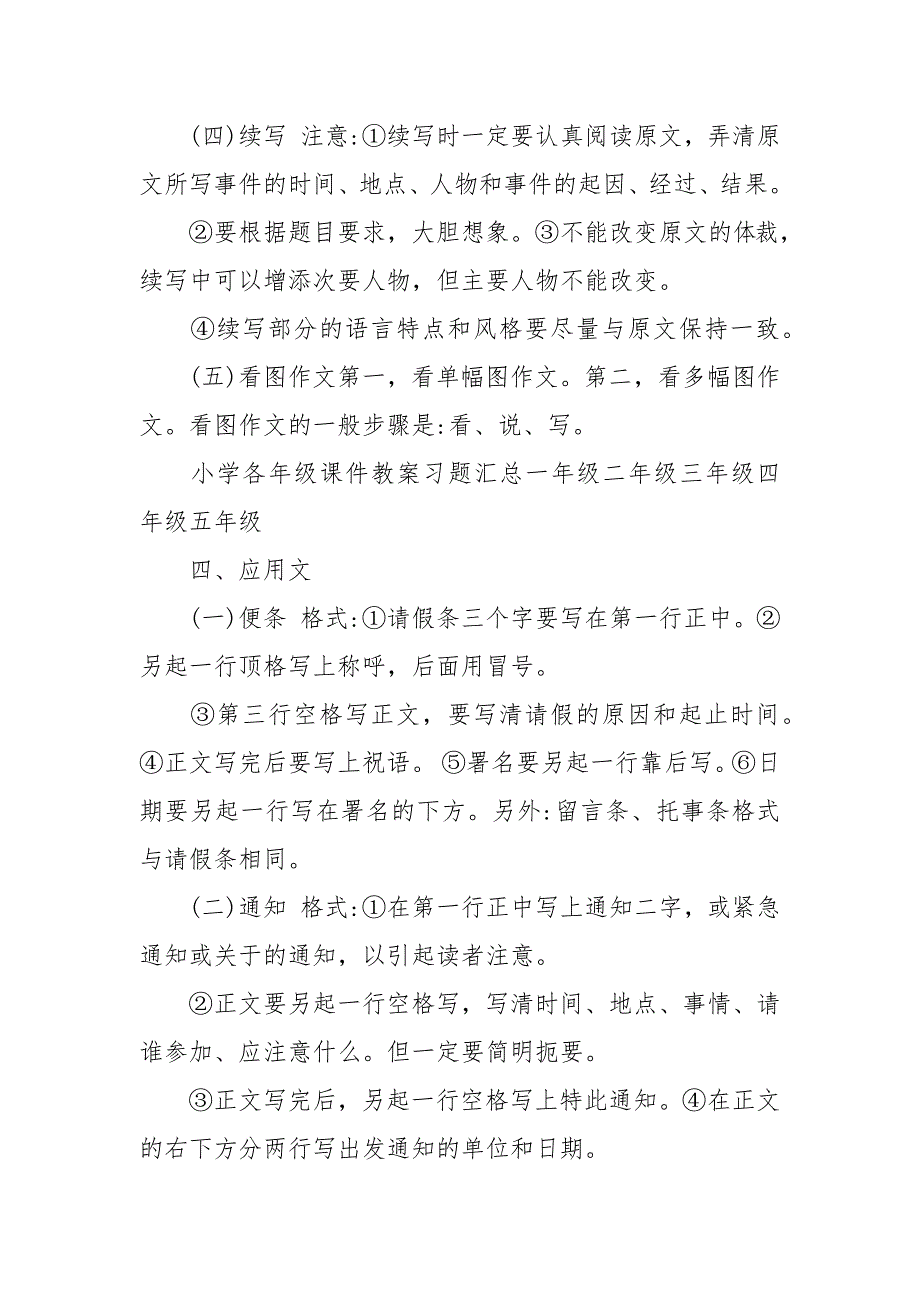 (四)续写 注意:①续写时一定要认真阅读原文，弄清原
文所写事件的时间、地点、人物和事件的起因、经过、结果。
②要根据题目要求，大胆想象。③不能改变原文的体裁，
续写中可以增添次要人物，但主要人物不能改变。
④续写部分的语言特点和风格要尽量与原文保持一致。
(五)看图作文第一，看单幅图作文。第二，看多幅图作
文。看图作文的一般步骤是:看、说、写。
小学各年级课件教案习题汇总一年级二年级三年级四
年级五年级
四、应用文
(一)便条 格式:①请假条三个字要写在第一行正中。②
另起一行顶格写上称呼，后面用冒号。
③第三行空格写正文，要写清请假的原因和起止时间。
④正文写完后要写上祝语。 ⑤署名要另起一行靠后写。⑥日
期要另起一行写在署名的下方。另外:留言条、托事条格式
与请假条相同。
(二)通知 格式:①在第一行正中写上通知二字，或紧急
通知或关于的通知，以引起读者注意。
②正文要另起一行空格写，写清时间、地点、事情、请
谁参加、应注意什么。但一定要简明扼要。
③正文写完后，另起一行空格写上特此通知。④在正文
的右下方分两行写出发通知的单位和日期。